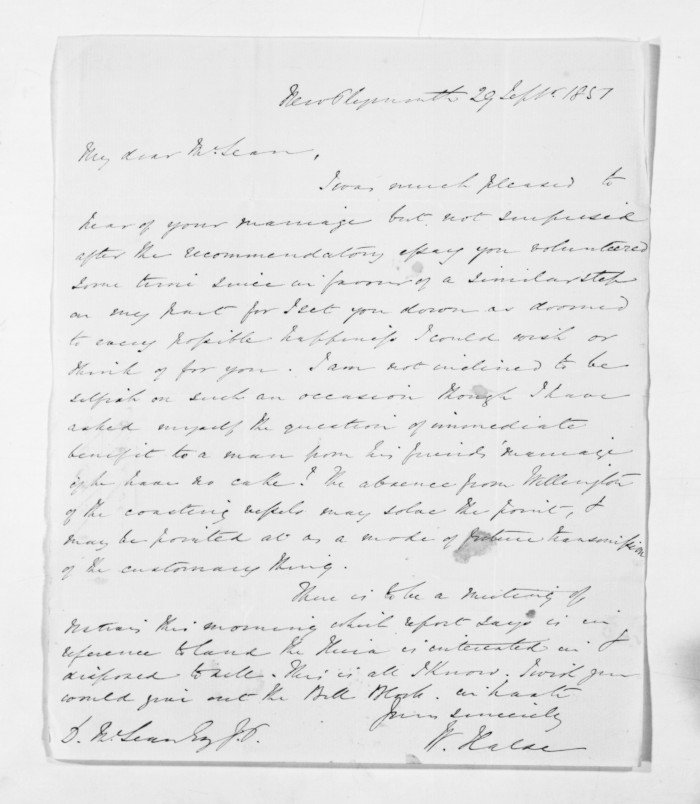 New Plymouth 29 Septr. 1851
My dear McLean,
I was much pleased to
hear of your marriage but not surprised
after the recommendatory essay you volunteered
some time since in favor of a similar step
on my part for I set you down as doomed
to every possible happiness I could wish or
think of for you. I am not inclined to be
selfish on such an occasion though I have
asked myself the question of immediate
benefit to a man from his friends' marriage
if he have no cake? The absence from Wellington
of the coasting vessels may solve the point, &
may be pointed at as a mode of future transmission
of the customary thing.
There is to be a meeting of
natives this morning which report says is in
reference to land the is interested in &
disposed to sell. This is all I know. I wish you
would give out the Bell Block. in haste
Yours sincerely
W. Halse
D. McLean Esq J.P.